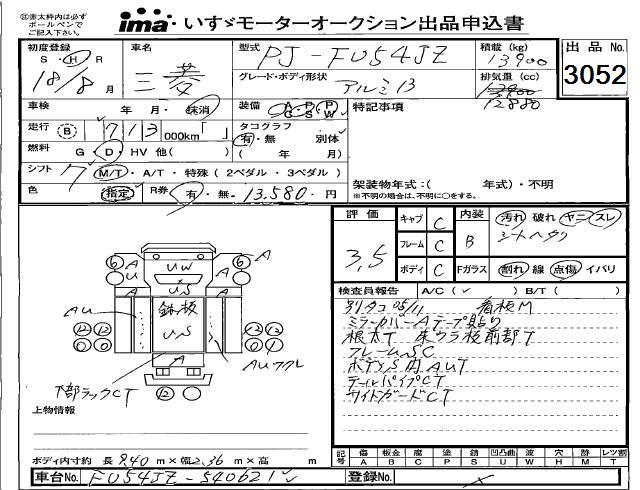 ※太枠内は必ず
ボールペンで
ご記入下さい。
ima いすゞモーターオークション出品申込書
初度登録
S・H・R
18/8月
車名
三菱
型式
PJ-FU54JZ
積載(kg)
13900
出品No.
3052
グレード・ボディ形状
アルミ13
排気量(cc)
12880
車検 年 月・抹消
装備 A・P・P C・S・W
特記事項
走行 B 713 000km「 」
タコグラフ
有・無 別体
( 年 月)
燃料 G・D・HV 他( )
シフト 7 M/T・A/T・特殊(2ペダル・3ペダル)
架装物年式:( 年式)・不明
※不明の場合は、不明に○をする。
色 指定 R券 有・無 13,580 円
評価
3,5
キャブ C
フレーム C
ボディ C
内装 B
Fガラス
汚れ 破れ ヤニ スレ
シートヘタリ
割れ 線 点傷 イバリ
検査員報告 A/C(✓) B/T( )
別タコ 05/11 看板M
ミラーカバーAテープ貼り
根太T 床ウラ板前部T
フレームSC
ボディS内AUT
テールパイプCT
サイドガードCT
A
6
UW
A
6
A
US
A
AU
鉄板
US
12 12
0 0
12 12
0 0
A
AUフクレ
下部ラックCT
12
上物情報
ボディ内寸約 長 9.40 m×幅 2.36 m×高 m
記号
傷 板金 腐 塗 錆 凹凸曲 凹 穴 跡 レツ割
A B C P S U W H M T
車台No. FU54JZ-540621
登録No.